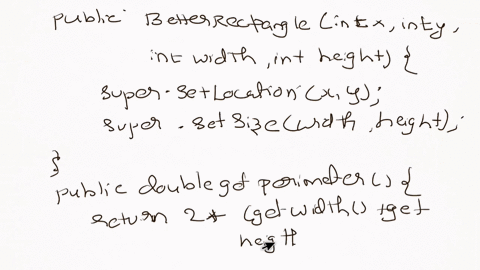 public BetterRectangle (int x, int y,
int width, int height) {
super.setLocation (x, y);
super.setSize(width, height);
}
public double get perimeter() {
return 2* (get width() + get
heigtt